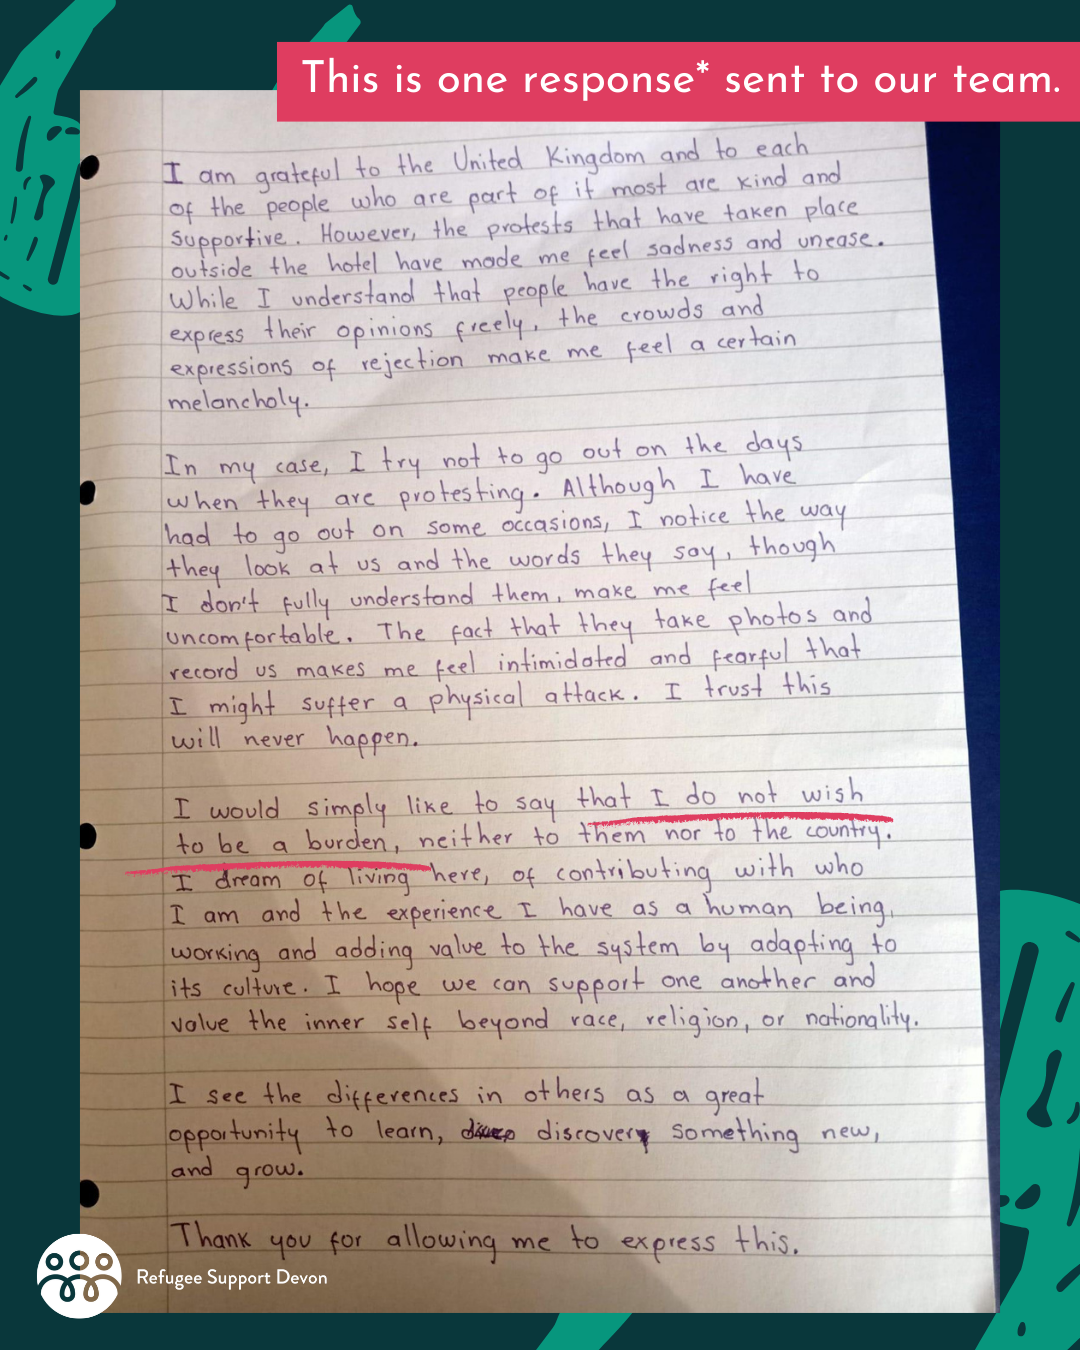 This is one response* sent to our team.
I am grateful to the United Kingdom and to each
of the people who are part of it most are kind and
supportive. However, the protests that have taken place
outside the hotel have made me feel sadness and unease.
While I understand that people have the right to
express their opinions freely, the crowds and
expressions of rejection make me feel a certain
melancholy.
In my case, I try not to go out on the days
when they are protesting. Although I have
had to go out on some occasions, I notice the way
they look at us and the words they say, though
I don't fully understand them, make me feel
uncomfortable. The fact that they take photos and
record us makes me feel intimidated and fearful that
I might suffer a physical attack. I trust this
will never happen.
I would simply like to say that I do not wish
to be a burden, neither to them nor to the country.
I dream of living here, of contributing with who
I am and the experience I have as a human being,
working and adding value to the system by adapting to
its culture. I hope we can support one another and
value the inner self beyond race, religion, or nationality.
I see the differences in others as a great
opportunity to learn, discover something new,
and grow.
Thank you for allowing me to express this.
Refugee Support Devon